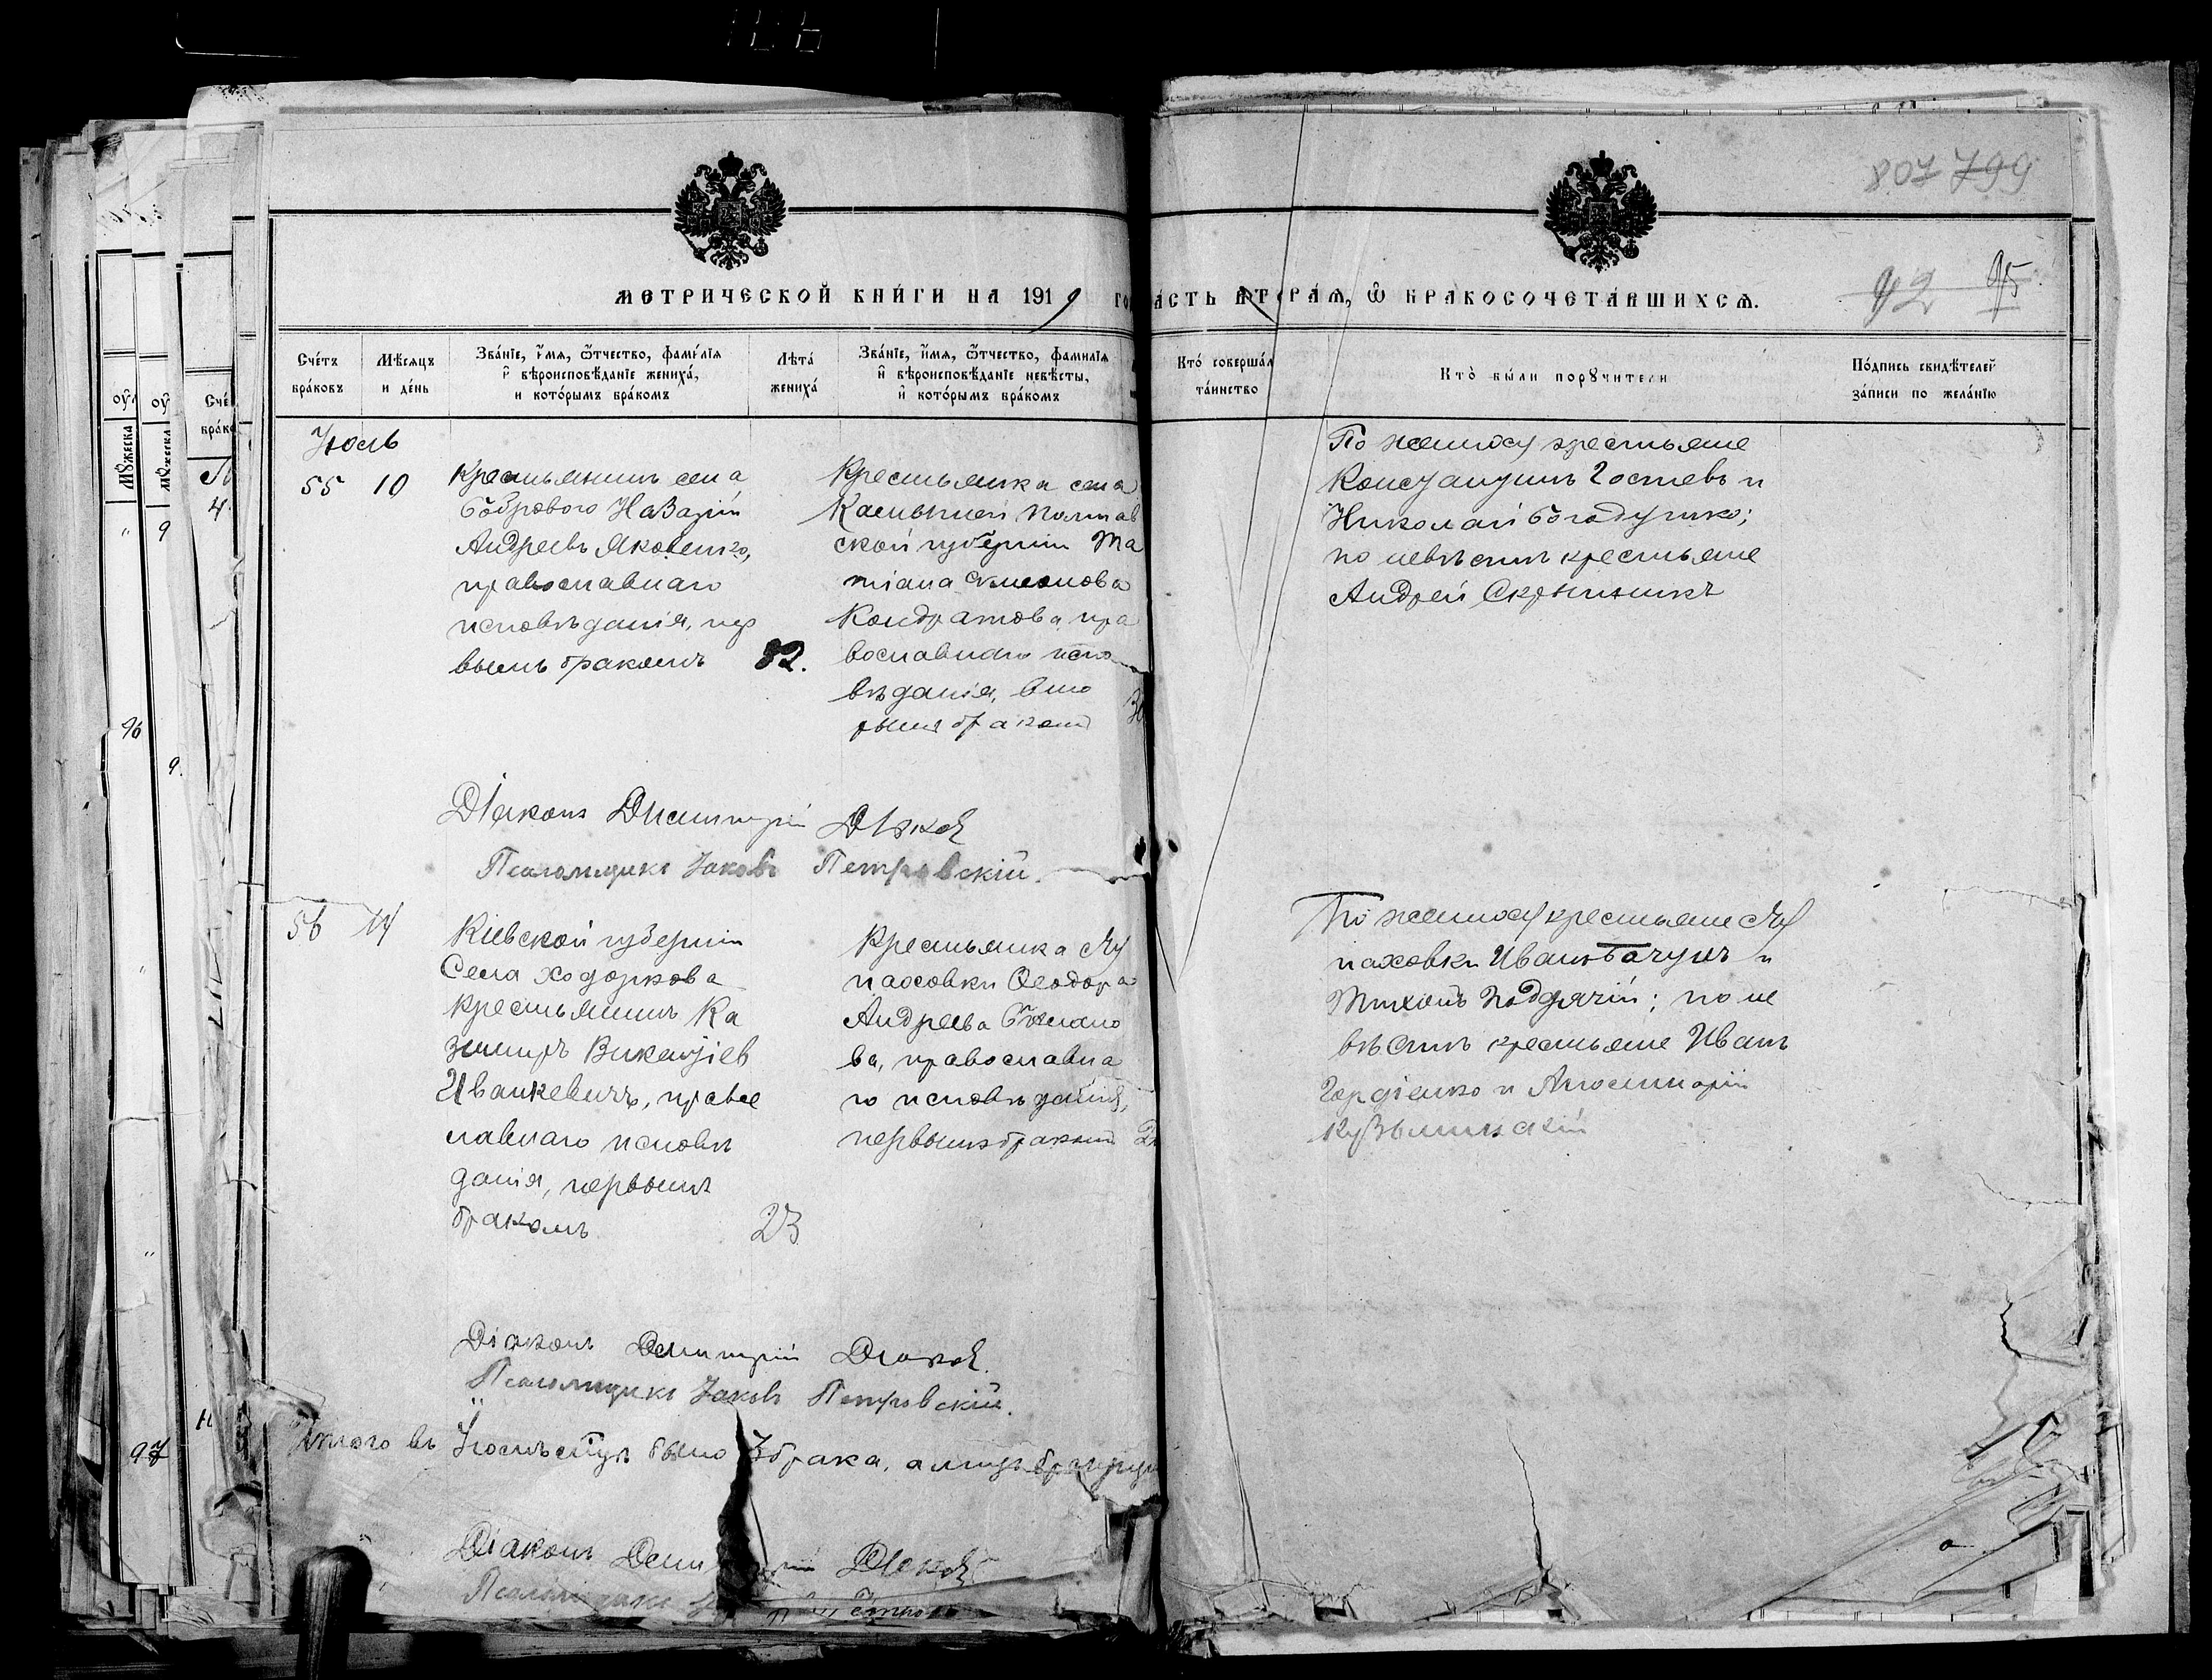 807 799
92 95
МЕТРИЧЕСКОЙ КНИГИ НА 1919 ГО
АСТЬ ВТОРАЯ, Ѿ БРАКОСОЧЕТАВШИХСЯ.
Счетъ браковъ
Мѣсяцъ и день
Званіе, имя, ѿтчество, фамилія и вѣроисповѣданіе жениха, и которымъ бракомъ
Лѣта жениха
Званіе, имя, ѿтчество, фамилія и вѣроисповѣданіе невѣсты, и которымъ бракомъ
Кто совершал таинство
Кто были поручители
Подпись свидѣтелей записи по желанію
Июль
55 10
Крестьянинъ села
Боброваго Назарій
Андреевъ Яковенко,
православнаго
исповѣданія, пер
вымъ бракомъ 32.
Крестьянка села
Полтав
ской губерніи Та
тіана Симеонова
Кондратова, пра
вославнаго испо
вѣданія, вто
рымъ бракомъ
По жениху крестьяне
Константинъ Гостевъ и
Николай Богодушко;
по невѣстѣ крестьяне
Андрей Скрыпникъ
Діаконъ Димитрій Дюков
Псаломщикъ Іаковъ Петровскій.
56 14
Кіевской губерніи
Села Ходоркова
крестьянинъ Ка
зимиръ Викентіев
Иванкевичъ, право
славнаго исповѣ
данія, первымъ
бракомъ 23
Крестьянка Лу
паховки Ѳеодора
Андреева
ва, православна
го исповѣданія,
первымъ бракомъ
По жениху крестьяне Лу
паховки Иванъ Бачунъ и
Тихонъ Подгячій; по не
вѣстѣ крестьяне Иванъ
Гордіенко и Аполинарій
Кузьминскій
Діаконъ Димитрій Дюков.
Псаломщикъ Іаковъ Петровскій.
Итого въ Іюлѣ мѣсяцѣ было 3 брака, а лицъ
Діаконъ Дим рій Дюков
Псаломщикъ